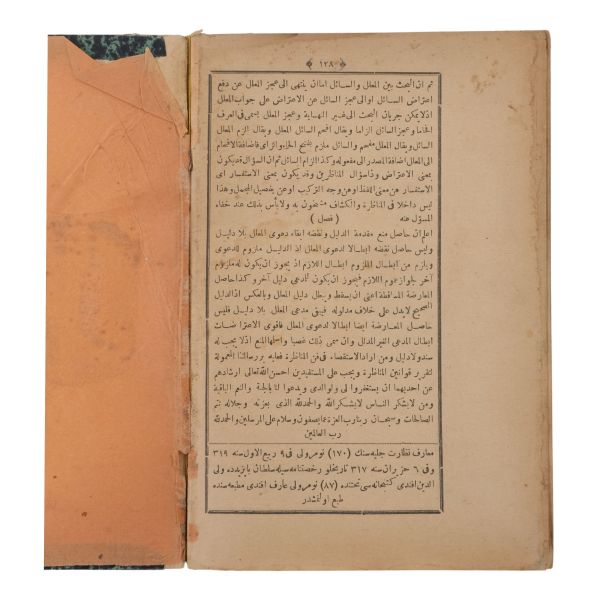 ﴿ ١٣٨ ﴾
ثم ان البحث بين المعلل والسائل اما ان ينتهى الى عجز المعلل عن دفع
اعتراض السائل او الى عجز السائل عن الاعتراض على جواب المعلل
اذ لا يمكن جريان البحث الى غير النهاية وعجز المعلل يسمى فى العرف
الحاما وعجز السائل الزاما ويقال افحم السائل المعلل ويقال الزم المعلل
السائل ويقال المعلل مفحم والسائل ملزم بفتح الحاء والزاى فاضافة الافحام
الى المعلل اضافة المصدر الى مفعوله وكذا الزام السائل ثم ان السؤال قد يكون
بمعنى الاعتراض وذا سؤال المناظرين وقد يكون بمعنى الاستفسار اى
الاستفسار عن معنى اللفظ او عن وجه التركيب او عن تفصيل المجمل وهذا
ليس داخلا فى المناظرة والكشاف مشحون به ولا بأس بذلك عند خفاء
المسؤل عنه ( فصل )
اعلم ان حاصل منع مقدمة الدليل ونقضه ابقاء دعوى المعلل بلا دليل
وليس حاصل نقضه ابطالا لدعوى المعلل اذ الدليل ملزوم للدعوى
ويلزم من ابطال الملزوم ابطال اللازم اذ يجوز ان يكون له ملزوم
آخر لجواز عموم اللازم فيجوز ان يكون للمدعى دليل آخر وكذا حاصل
المعارضة المساقطة اعنى ان يسقط ويبطل دليل المعلل وبالعكس اذ الدليل
الصحيح لا يدل على خلاف مدلوله فيبقى مدعى المعلل بلا دليل فليس
حاصل المعارضة ايضا ابطالا لدعوى المعلل فاقوى الاعتراضات
ابطال المدعى الغير المدلل وان سمى ذلك غصبا واسلمها المنع اذ لا يجب له
سند ولا دليل ومن اراد الاستقصاء فى فن المناظرة فعليه برسالتنا المعمولة
لتقرير قوانين المناظرة ويجب على المستفيدين احسن الله تعالى ارشادهم
عن احد بهما ان يستغفروا لى ولوالدى ويدعوا لنا بالجنة والنعم الباقية
ومن لا يشكر الناس لا يشكر الله والحمد لله الذى بعزته وجلاله تتم
الصالحات وسبحان ربنا رب العزة عما يصفون وسلام على المرسلين والحمد لله
رب العالمين
معارف نظارت جليه سنك (١٧٠) نومرولى فى ٩ ربيع الاول سنه ٣١٩
وفى ٦ حزيران سنه ٣١٧ تاريخلو رخصتنامه سيله سلطان بايزيدده ولى
الدين افندى كتبخانه سى تحتنده (٨٧) نومرولى عارف افندى مطبعه سنده
طبع اولنمشدر